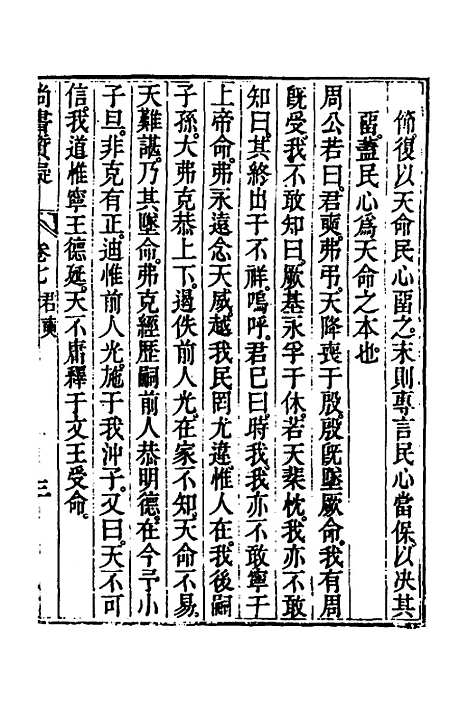 復以天命民心畱之。末則專言民心當保。以决其
畱。蓋民心爲天命之本也。
周公若曰。君奭。弗弔。天降喪于殷。殷旣墜厥命。我有周
旣受。我不敢知曰。厥基永孚于休。若天棐忱。我亦不敢
知曰。其終出于不祥。嗚呼。君已曰。時我。我亦不敢寧于
上帝命。弗永遠念天威。越我民罔尤違。惟人在。我後嗣
子孫。大弗克恭上下。遏佚前人光。在家不知。天命不易。
天難諶。乃其墜命。弗克經歷。嗣前人恭明德。在今予小
子旦。非克有正。迪惟前人光。施于我沖子。又曰。天不可
信。我道惟寧王德延。天不庸釋于文王受命。
尚書質疑 卷七 君奭 三